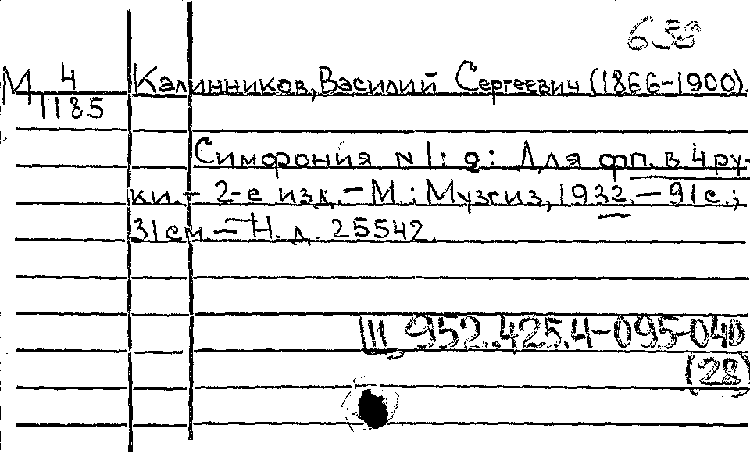 638
М 4 Калинников, Василий Сергеевич (1866-1900).
1185
Симфония N 1: g: Для фп. в 4 ру-
ки. - 2-е изд. - М.: Музгиз, 1932. - 91 с.;
31 см. - Н. д. 25542.
III 952.425.4-095-040
(28)